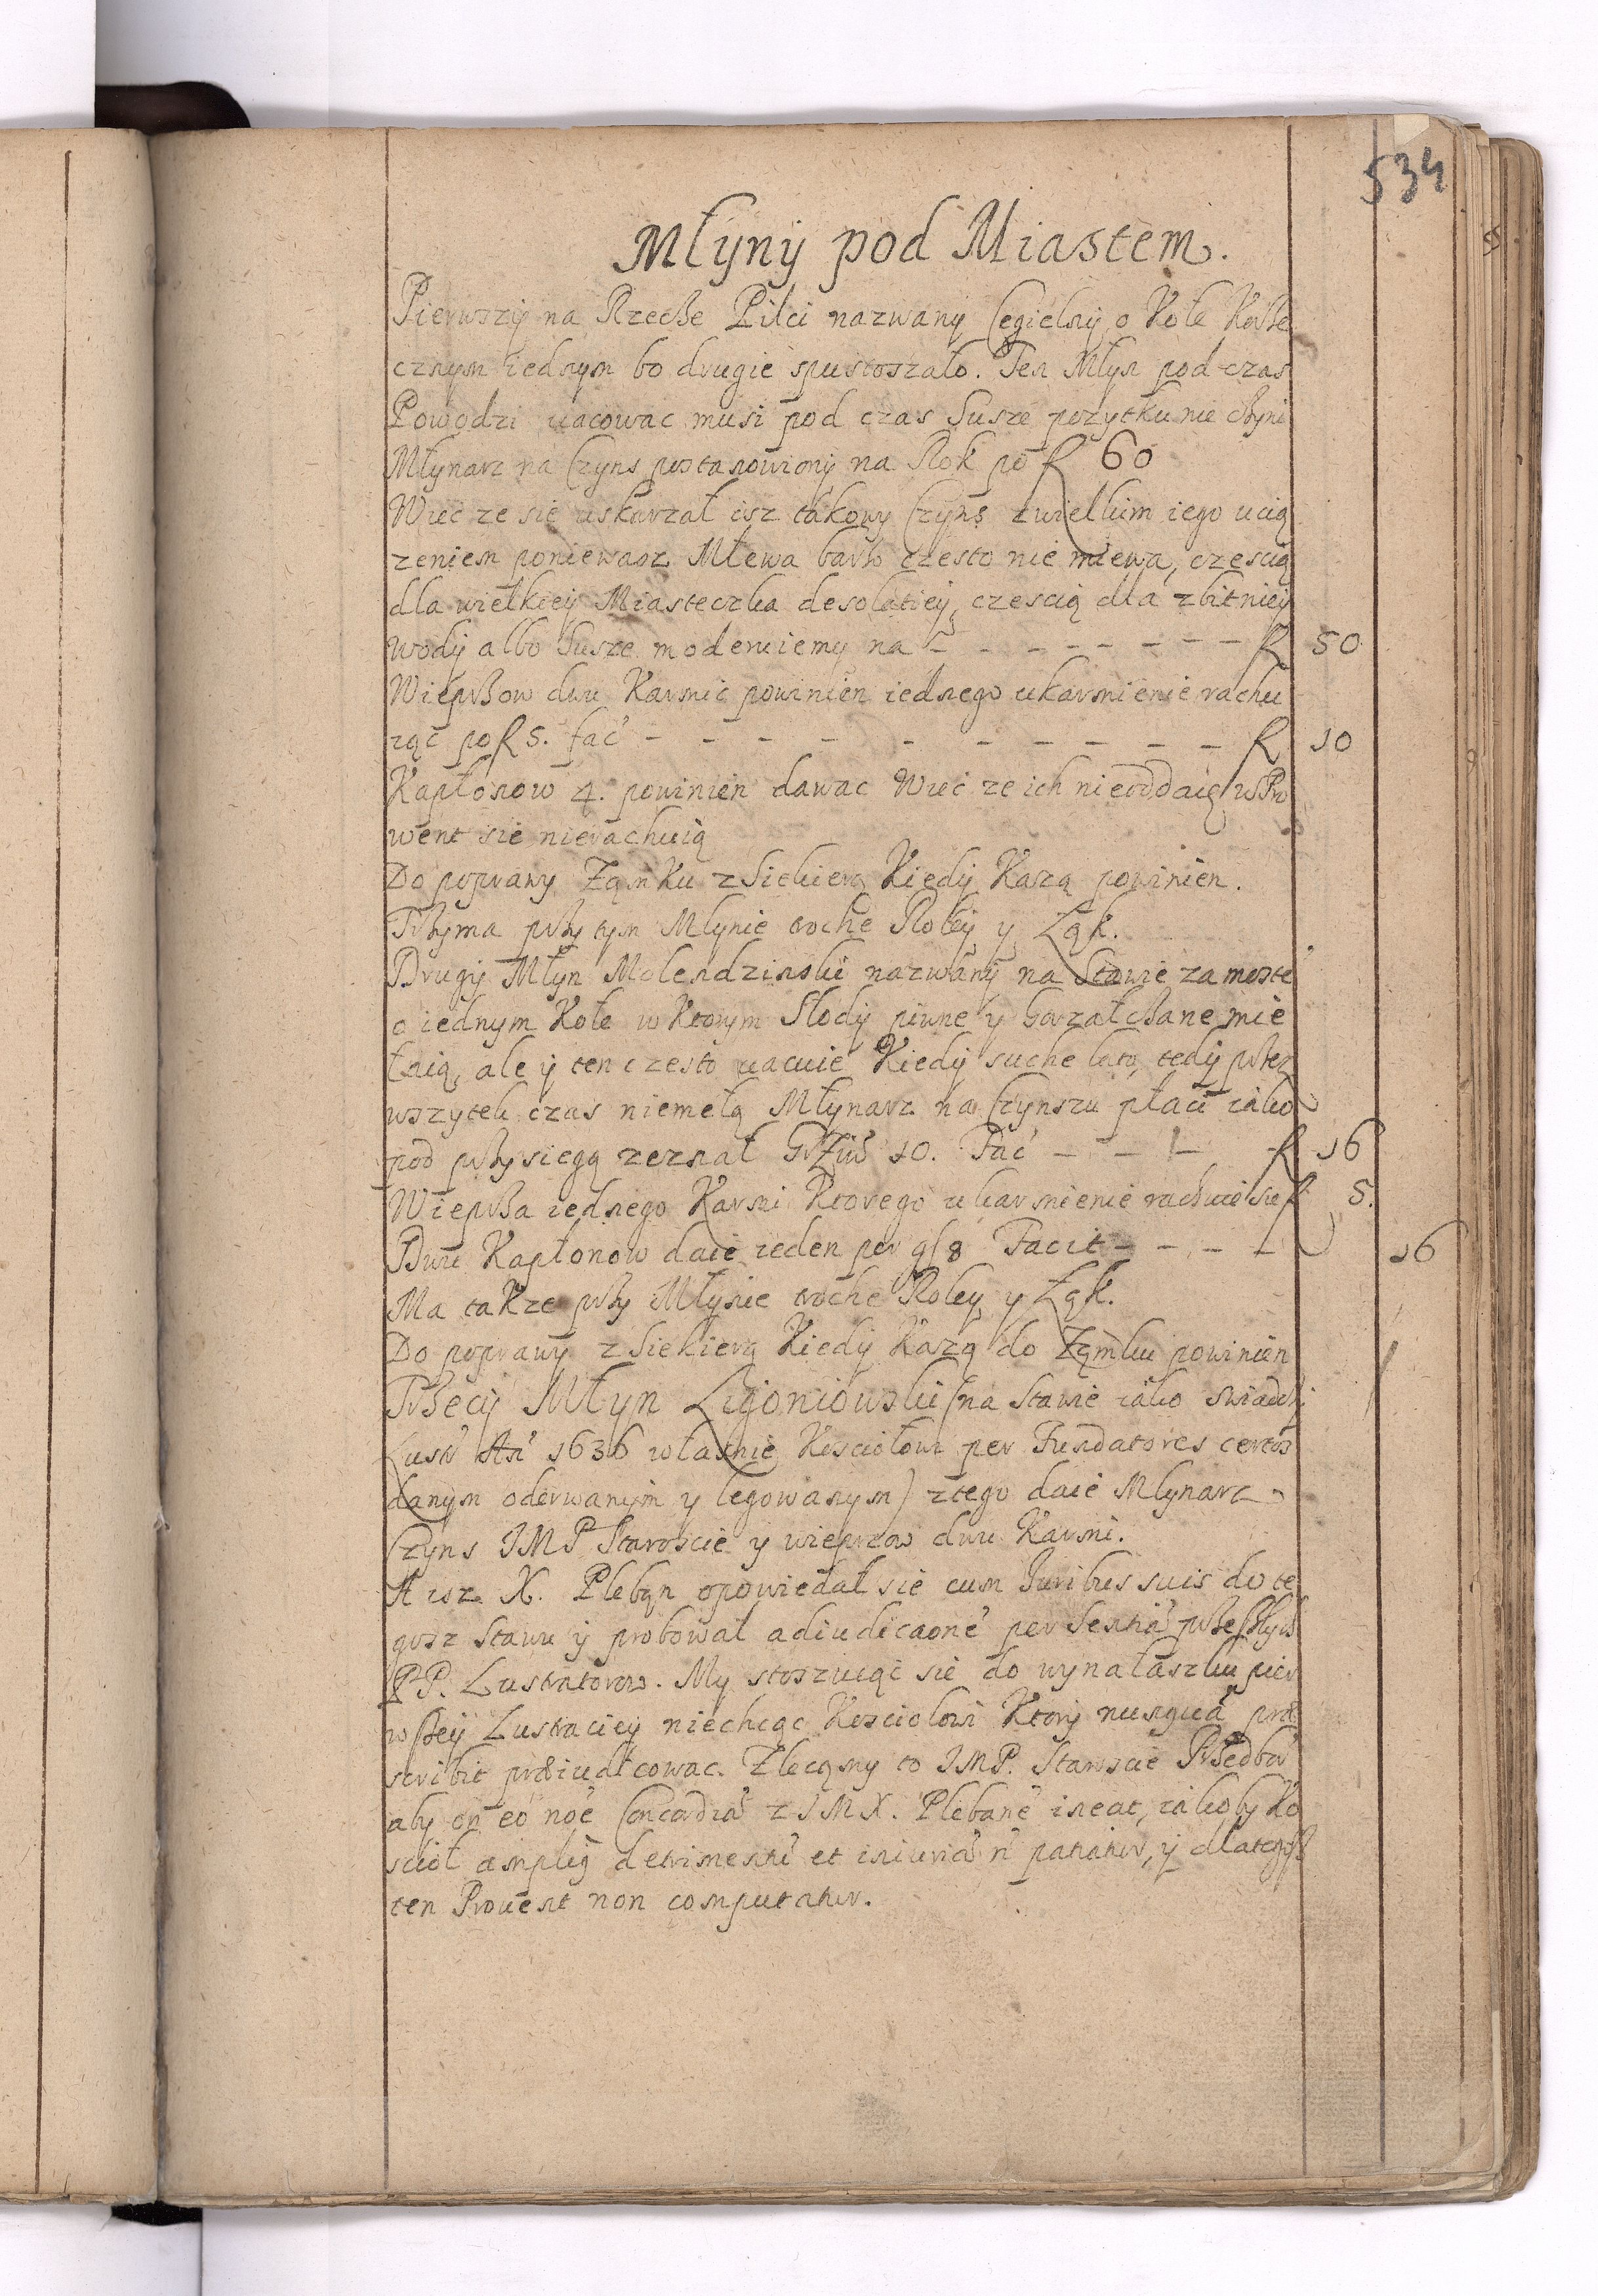 534
Młyny pod Miastem.
Pierwszy na Rzecze Pilci nazwany Cegielny, o Kole Korze
cznym iednym bo drugie spustoszało. Ten Młyn pod czas
Powodzi vacowac musi pod czas Susze pozytku nie czyni
Młynarz na Czyns postanowiony na Rok po f 60
Wiec ze sie uskarzał isz takowy Czyns z wielkim iego ucią
zeniem poniewasz Mlewa barzo czesto nie miewa, czescią
dla wielkiey Miasteczka desolatiey, czescią dla zbitniey
wody albo Susze moderuiemy na - - - - - - - - f 50
Wieprzow dwu Karmic powinien iednego ukarmienie rachu
ząc po f 5. fac - - - - - - - - - - f 10
Kapłonow 4. powinien dawac Wiec ze ich nieoddaią w Pro
went sie nierachuią
Do poprawy Ząmku z Siekierą Kiedy Kazą powinien.
Trzyma przy tym Mlynie troche Roley y Łąk.
Drugi Młyn Molendzinski nazwany na Stawie za moste
o iednym Kole w Ktorym Słody piwne y Gorzałczane mie
laią, ale y ten czesto vacuie Kiedy suche lato, tedy przez
wszytek czas niemelą Młynarz na Czynszu płaci iako
pod przysiegą zeznał 10. Fac - - - - f 16
Wieprza iednego Karmi Ktorego ukarmienie rachuie sie f 5.
Dwu Kapłonow daie ieden per g 8 Facit - - - - 16
Ma takze przy Młynie troche Roley y Łąk.
Do poprawy z Siekierą Kiedy Kazą do Ząmku powinien
Trzeci Młyn Ligoniowski (na Stawie iako swiadczi
1636 własnie Kosciołowi per Fundatores certos
danym oderwanym y legowanym) z tego daie Mlynarz
Czyns JMP Staroscie y wieprzow dwu Karmi.
A isz X. Pleban opowiedał sie cum Iuribus suis do te
gosz Stawu y probował adiudicaone per Sentia przeszłych
PP. Lustratorow. My stoszuiąc sie do wynalaszku pier
wszey Lustraciey niechcąc Kosciołowi Ktory nunqua prae
scribit praeiudicowac. Zlecamy to JMP. Staroscie Przedbor
aby on eo noe Concordia z JMX. Plebane ineat, iakoby Ko
sciol amplius detrimentu et iniuria n patiatur, y dlategosz
ten Provent non computatur.